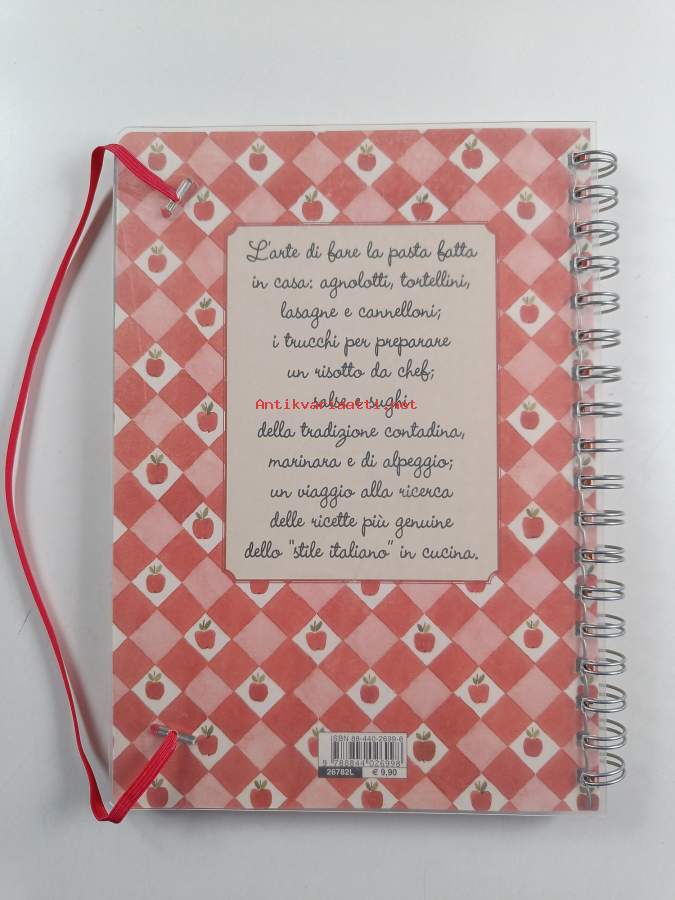 L'arte di fare la pasta fatta
in casa: agnolotti, tortellini,
lasagne e cannelloni;
i trucchi per preparare
un risotto da chef;
salse e sughi
Antikvariaatti.net
della tradizione contadina,
marinara e di alpeggio;
un viaggio alla ricerca
delle ricette più genuine
dello "stile italiano" in cucina.
ISBN 88-440-2699-6
9 788844 026998
26782L € 9,90